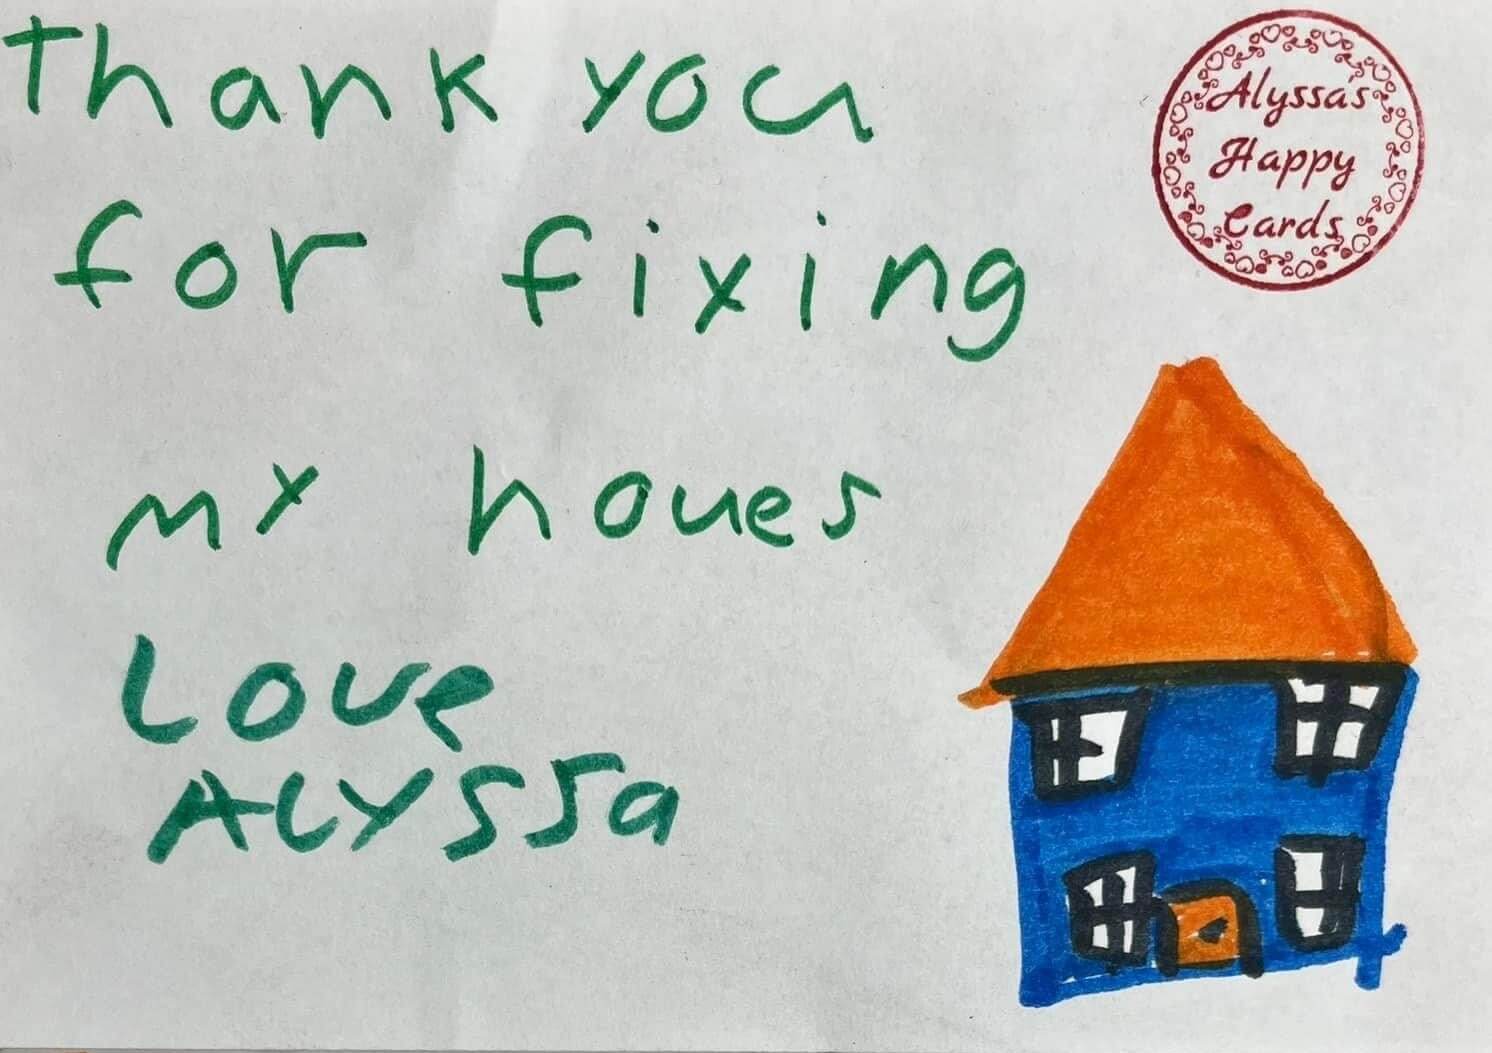 Thank you
for fixing
my houes
Love
ALYSSa
Alyssa's
Happy
Cards